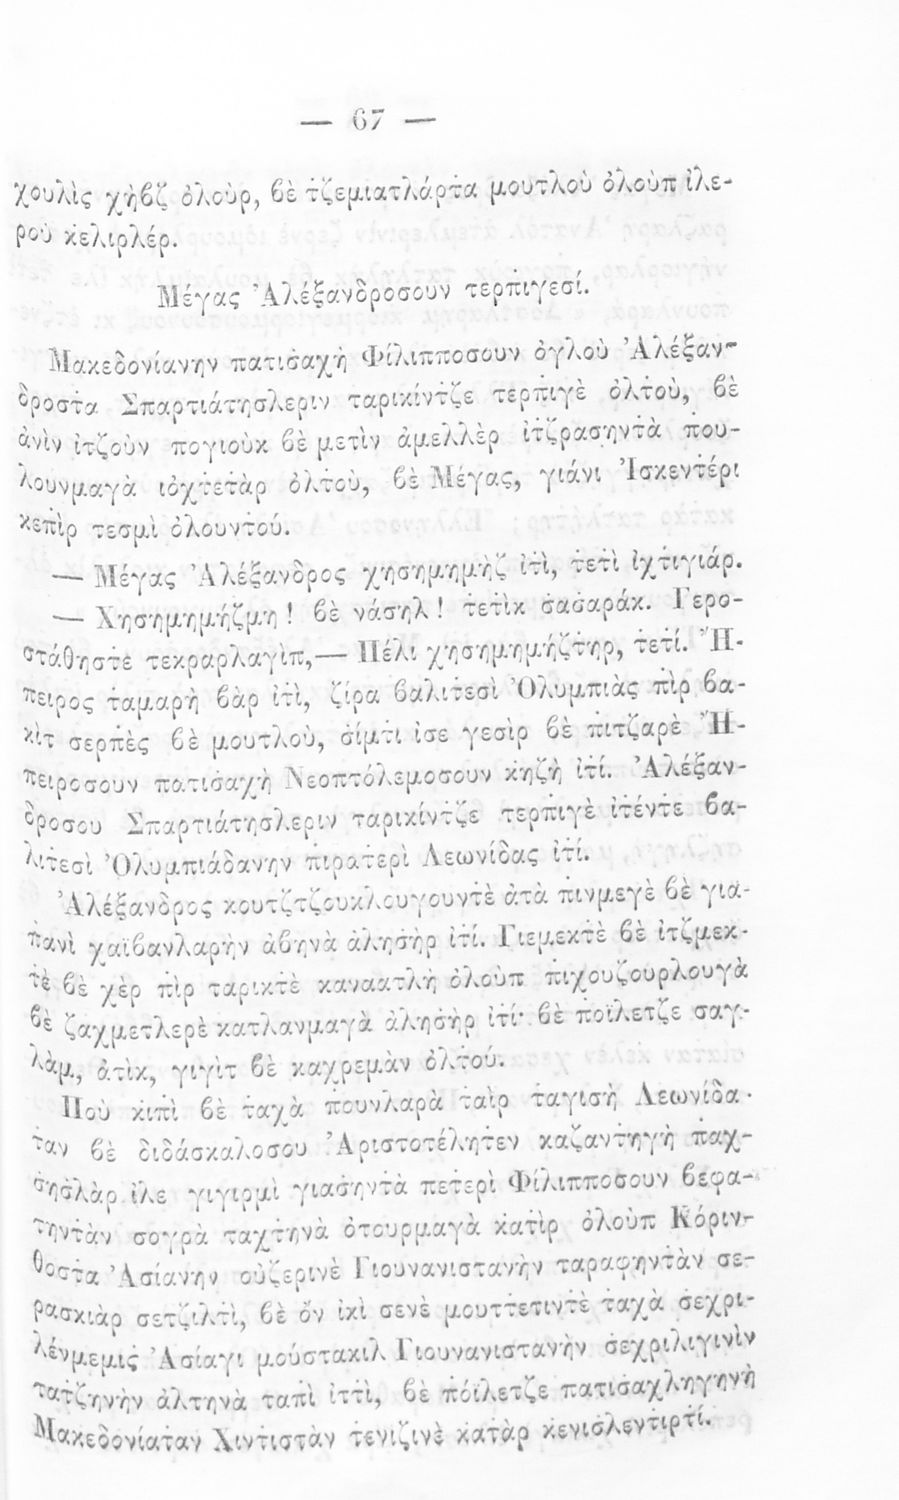 — 67 —
χουλὶς χὴβζ ὀλοὺρ, βὲ τζεμιατλάρτα μουτλοὺ ὀλοὺπ ἰλε-
ροὺ κελιρλέρ.
Μέγας Ἀλέξανδροσουν τερπιγεσί.
Μακεδονίανην πατισαχὴ Φίλιπποσουν ὀγλοὺ Ἀλέξαν-
δροστα Σπαρτιάτησλεριν ταρικίντζε τερπιγὲ ὀλτοὺ, βὲ
ἀνὶν ἰτζοὺν πογιοὺκ βὲ μετὶν ἀμελλὲρ ἰτζρασηντὰ που-
λουνμαγὰ ιὀχτετὰρ ὀλτοὺ, βὲ Μέγας, γιάνι Ἰσκεντέρι
κεπὶρ τεσμὶ ὀλουντού.
— Μέγας Ἀλέξανδρος χησημημὴζ ἰτὶ, τετὶ ἰχτιγιάρ.
— Χησημημήζμη! βὲ νάσηλ! τετὶκ σασαράκ. Γερο-
στάθηστε τεκραρλαγὶπ,— Πέλι χησημημήζτηρ, τετί. Ἤ-
πειρος ταμαρὴ βὰρ ἰτὶ, ζίρα βαλιτεσὶ Ὀλυμπιὰς πὶρ βα-
κὶτ σερπὲς βὲ μουτλοὺ, σίμτι ἰσε γεσὶρ βὲ πιτζαρὲ Ἤ-
πειροσουν πατισαχὴ Νεοπτόλεμοσουν κηζὴ ἰτί. Ἀλέξαν-
δροσου Σπαρτιάτησλεριν ταρικίντζε τερπιγὲ ἰτέντε βα-
λιτεσὶ Ὀλυμπιάδανην πιρατερὶ Λεωνίδας ἰτί.
Ἀλέξανδρος κουτζτζουκλουγουντὲ ἀτὰ πινμεγὲ βὲ για-
πανὶ χαϊβανλαρὴν ἀβηνὰ ἀλησὴρ ἰτί. Γιεμεκτὲ βὲ ἰτζμεκ-
τὲ βὲ χὲρ πὶρ ταρικτὲ καναατλὴ ὀλοὺπ πιχουζουρλουγὰ
βὲ ζαχμετλερὲ κατλανμαγὰ ἀλησὴρ ἰτί· βὲ ποϊλετζε σαγ-
λὰμ, ἀτὶκ, γιγὶτ βὲ καχρεμὰν ὀλτού.
Ποὺ κιπὶ βὲ ταχὰ πουνλαρὰ ταὶρ ταγισὴ Λεωνίδα-
ταν βὲ διδάσκαλοσου Ἀριστοτέλητεν καζαντηγὴ παχ-
σησλὰρ ἰλε γιγιρμὶ γιασηντὰ πετερὶ Φίλιπποσουν βεφα-
τηντὰν σογρὰ ταχτηνὰ ὀτουρμαγὰ κατὶρ ὀλοὺπ Κόριν-
θοστα Ἀσίανην οὐζερινὲ Γιουνανιστανὴν ταραφηντὰν σε-
ρασκιὰρ σετζιλτὶ, βὲ ὀν ἰκὶ σενὲ μουττετιντὲ ταχὰ σεχρι-
λένμεμις Ἀσίαγι μούστακιλ Γιουνανιστανὴν σεχριλιγινὶν
τατζηνὴν ἀλτηνὰ ταπὶ ἰττὶ, βὲ πόϊλετζε πατισαχληγηνὴ
Μακεδονίαταν Χιντιστὰν τενιζινὲ κατὰρ κενισλεντιρτί.